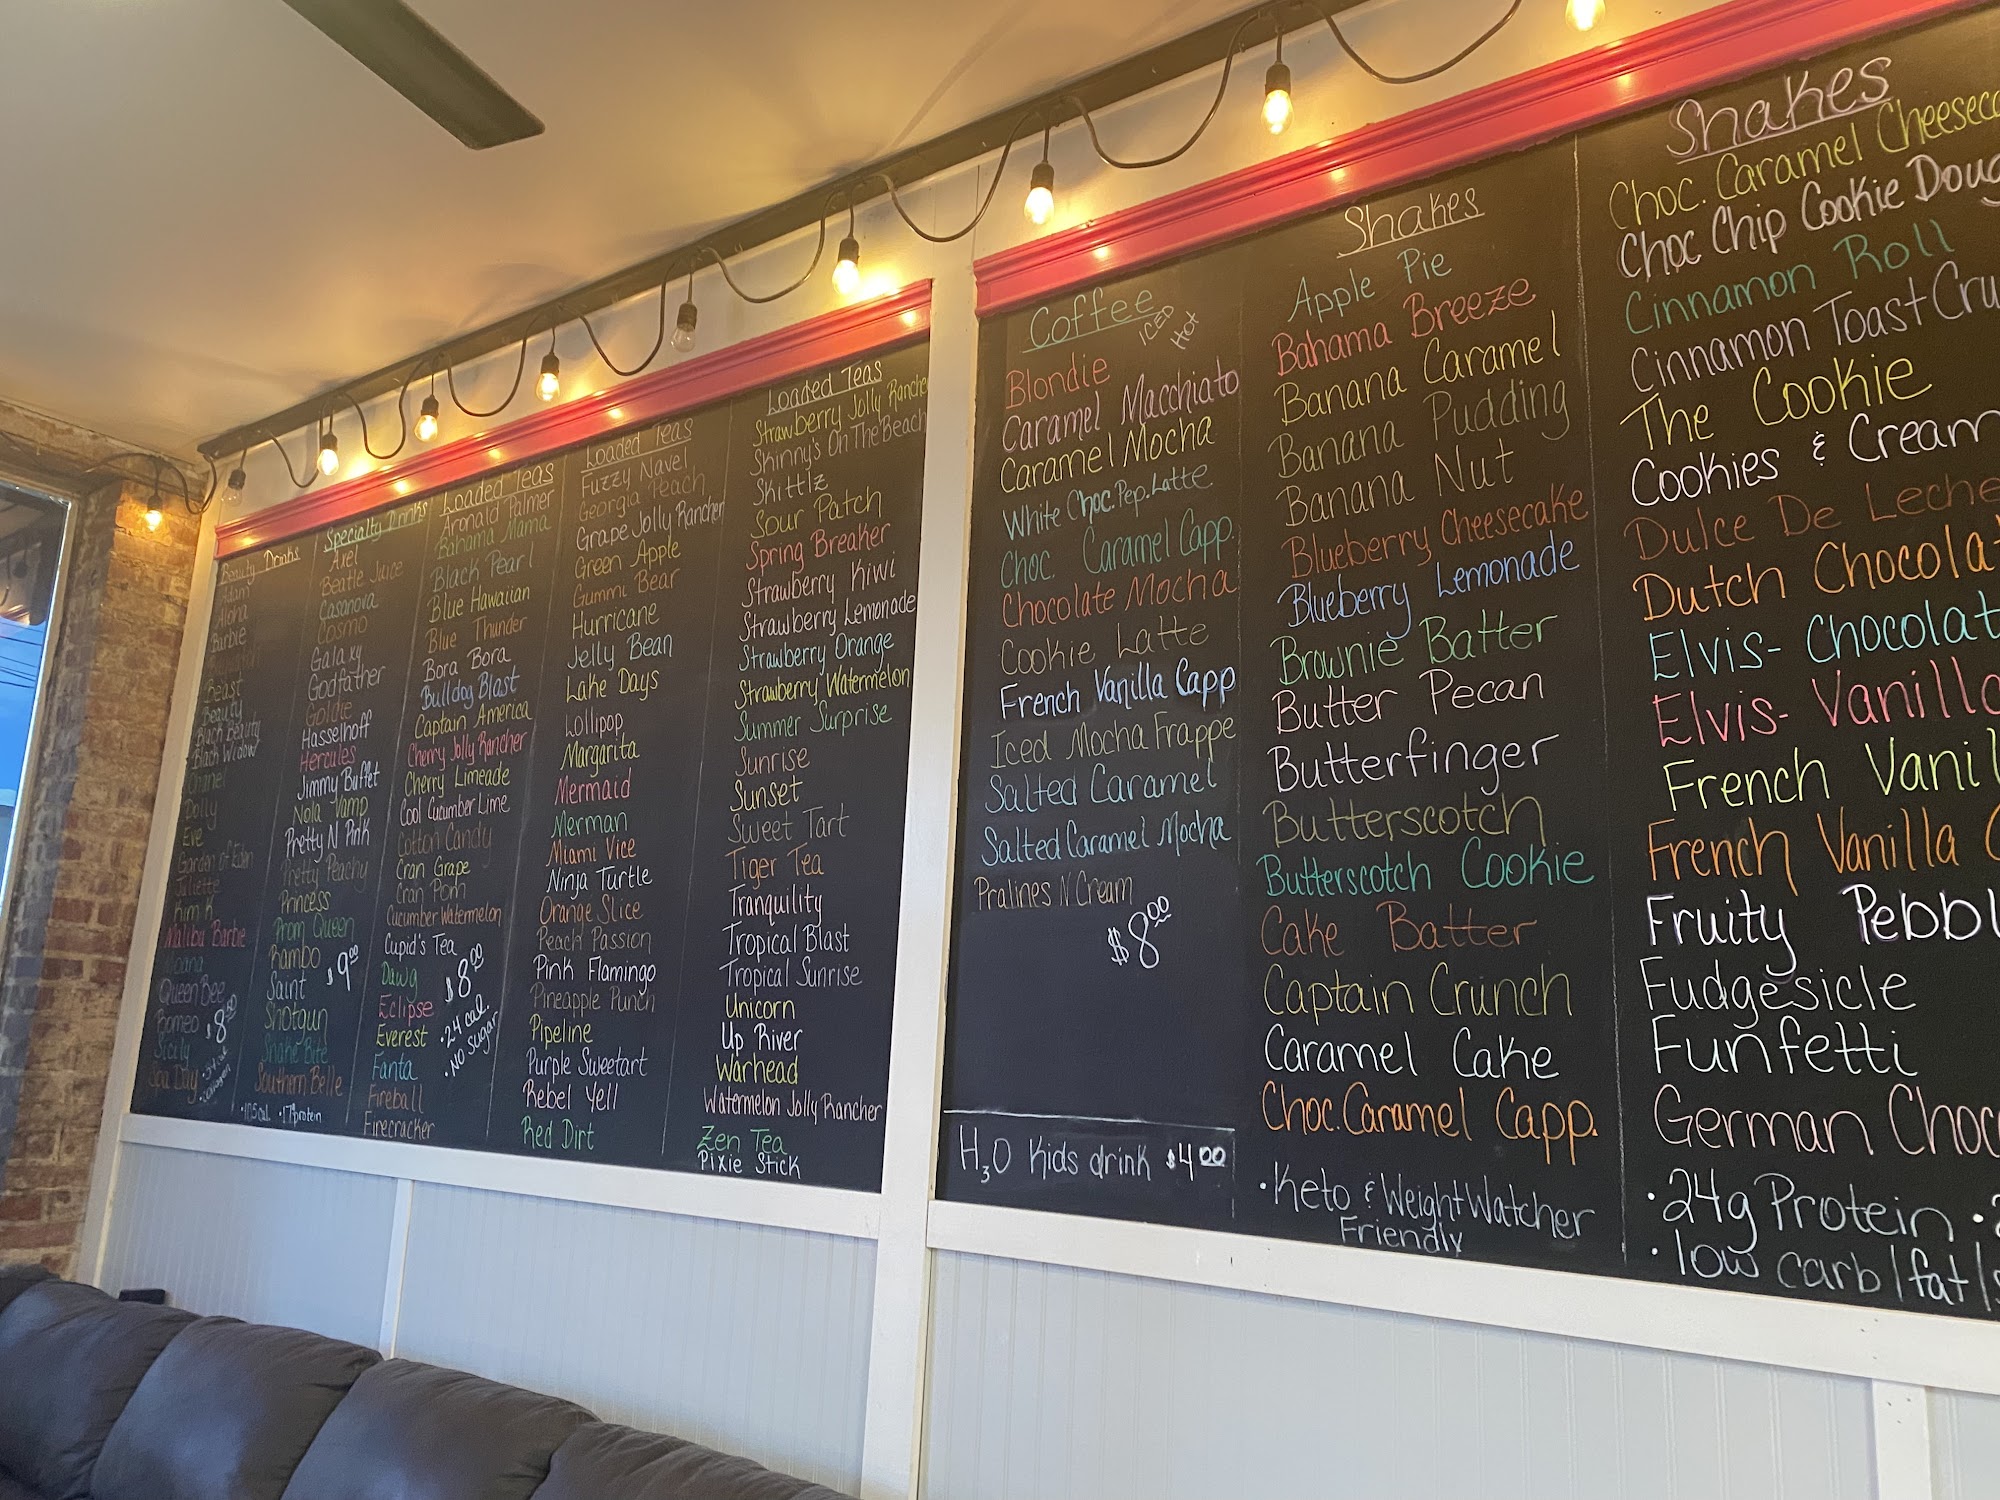 Beauty Drinks
Adam
Aloha
Barbie
Beast
Beauty
Black Beauty
Black Widow
Chanel
Dolly
Eve
Garden of Eden
Juliette
Kim K
Malibu Barbie
Moana
Queen Bee
Romeo
Sicily
Spa Day
$8.00
Specialty Drinks
Axel
Beatle Juice
Casanova
Cosmo
Galaxy
Godfather
Goldie
Hasselhoff
Hercules
Jimmy Buffet
Nola Vamp
Pretty N Pink
Pretty Peachy
Princess
Prom Queen
Rambo
Saint
Shotgun
Snake Bite
Southern Belle
$9.00
•105cal •17g protein
Loaded Teas
Aronald Palmer
Bahama Mama
Black Pearl
Blue Hawaiian
Blue Thunder
Bora Bora
Bulldog Blast
Captain America
Cherry Jolly Rancher
Cherry Limeade
Cool Cucumber Lime
Cotton Candy
Cran Grape
Cran Pom
Cucumber Watermelon
Cupid's Tea
Dawg
Eclipse
Everest
Fanta
Fireball
Firecracker
$8.00
•24 cal.
•No sugar
Loaded Teas
Fuzzy Navel
Georgia Peach
Grape Jolly Rancher
Green Apple
Gummi Bear
Hurricane
Jelly Bean
Lake Days
Lollipop
Margarita
Mermaid
Merman
Miami Vice
Ninja Turtle
Orange Slice
Peach Passion
Pink Flamingo
Pineapple Punch
Pipeline
Purple Sweetart
Rebel Yell
Red Dirt
Loaded Teas
Strawberry Jolly Ranche
Skinny's On The Beach
Skittlz
Sour Patch
Spring Breaker
Strawberry Kiwi
Strawberry Lemonade
Strawberry Orange
Strawberry Watermelon
Summer Surprise
Sunrise
Sunset
Sweet Tart
Tiger Tea
Tranquility
Tropical Blast
Tropical Sunrise
Unicorn
Up River
Warhead
Watermelon Jolly Rancher
Zen Tea
Pixie Stick
Coffee
ICED
Hot
Blondie
Caramel Macchiato
Caramel Mocha
White Choc. Pep. Latte
Choc. Caramel Capp.
Chocolate Mocha
Cookie Latte
French Vanilla Capp
Iced Mocha Frappe
Salted Caramel
Salted Caramel Mocha
Pralines N Cream
$8.00
H3O Kids drink $4.00
Shakes
Apple Pie
Bahama Breeze
Banana Caramel
Banana Pudding
Banana Nut
Blueberry Cheesecake
Blueberry Lemonade
Brownie Batter
Butter Pecan
Butterfinger
Butterscotch
Butterscotch Cookie
Cake Batter
Captain Crunch
Caramel Cake
Choc. Caramel Capp.
•Keto & Weight Watcher
Friendly
Shakes
Choc. Caramel Cheeseca
Choc Chip Cookie Doug
Cinnamon Roll
Cinnamon Toast Cru
The Cookie
Cookies & Cream
Dulce De Leche
Dutch Chocolat
Elvis- Chocolat
Elvis- Vanilla
French Vanil
French Vanilla C
Fruity Pebbl
Fudgesicle
Funfetti
German Choc
•24g Protein •2
•low carb/fat/s